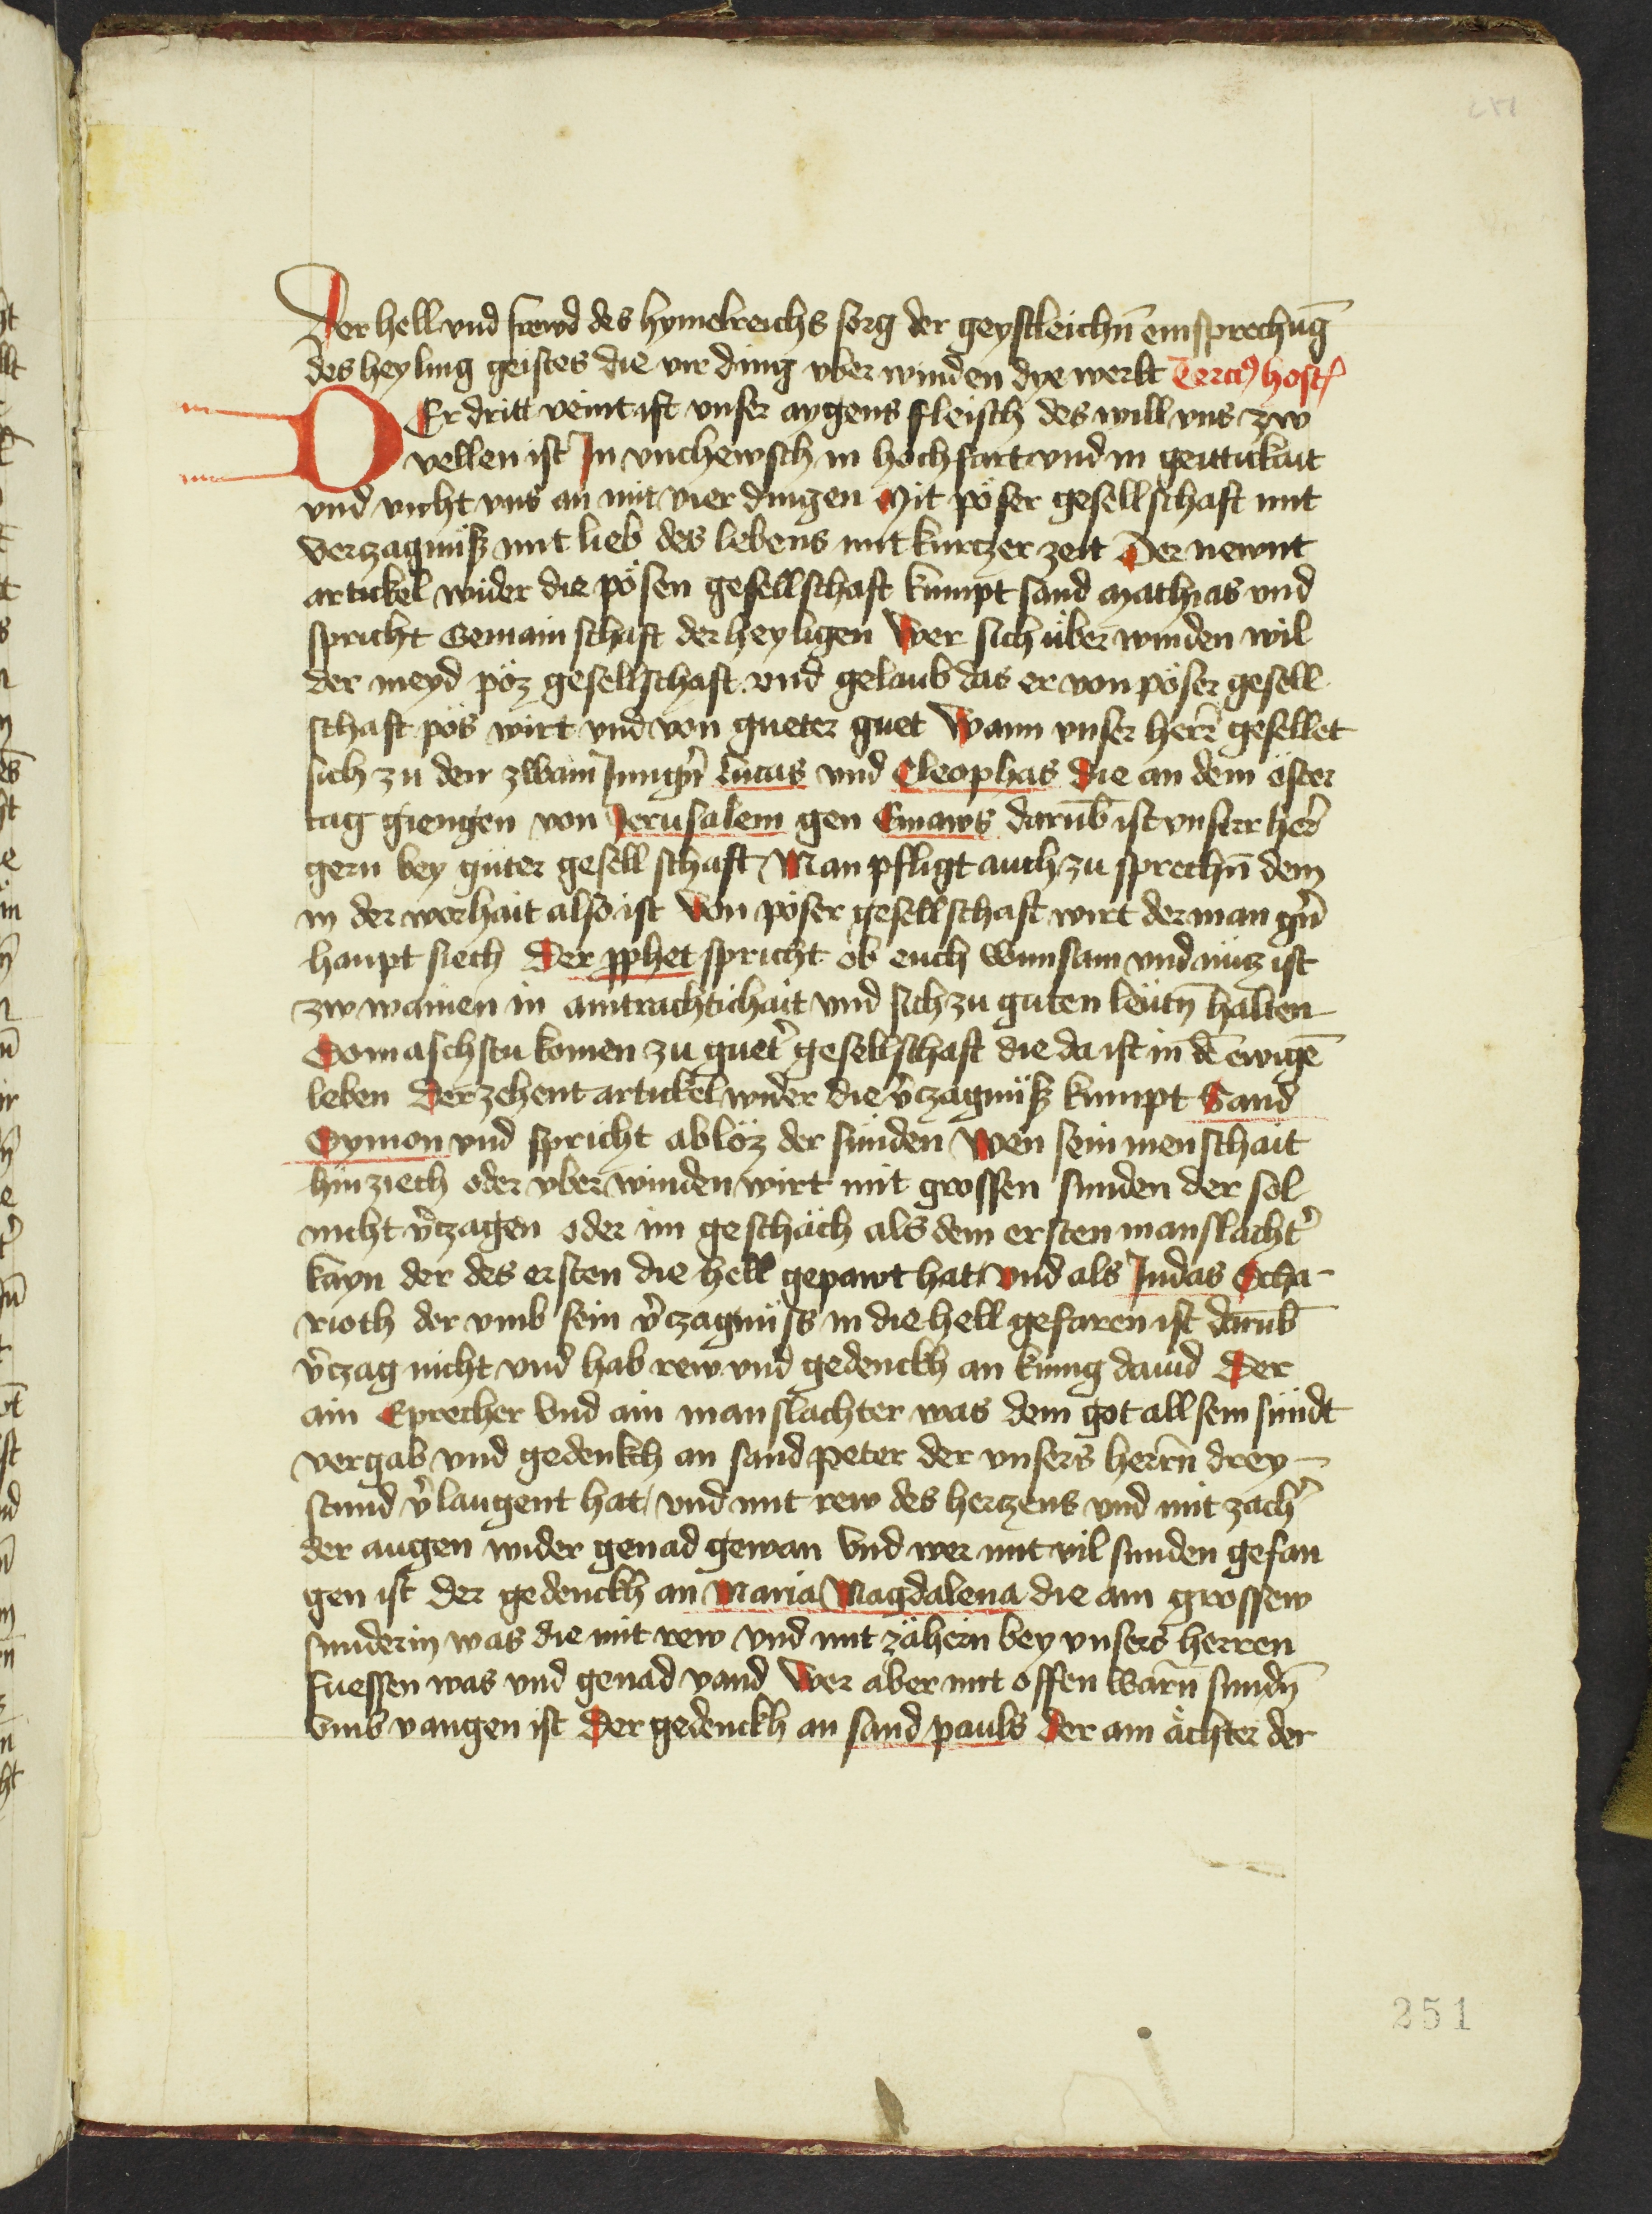 251
Der hell vnd frewd des hymelreichs sorg der geystleichn̄ einsprechūg
des heyling geistes die vir ding vber winden dye werlt Terciꝰ host
DEr dritt veint ist vnser aygens fleisch des will vns zw
vellen ist In vnchewsch in hochfart vnd in geittickait
vnd vicht vns an mit vier dingen Mit pöser gesellschaft mit
verzagnüß mit lieb des lebens mit kurtzer zeit Der newnt
artickel wider die pösen gesellschaft kumpt sand Mathias vnd
spricht Gemainschaft der heyligen Wer sich über winden wil
der meyd pöz gesellschaft vnd gelaub das er von pöser gesell
schaft pös wirt vnd von gueter guet Wann vnser herr̄ gesellet
sich zu den zwain Jungn̄ Lucas vnd Cleophas Die an dem öster
tag giengen von Jerusalem gen Emaws darūb ist vnser her̄
gern bey güter gesellschaft Man pfligt auch zu sprechn̄ dem
in der worhait also ist Von pöser gesellschaft wirt der man gn̄
haupt siech Der pphet spricht ob euch wunsam vnd nüz ist
zw wainen in aintrachtichait vnd sich zu guten leütn̄ halten
Dom aschstu komen zu guet̄ gesellschaft die da ist in dē ewigē
leben Der zehent artickel wider die v̄czagnüß kumpt Sand
Symon vnd spricht abloz der sünden Wen sein menschait
hin ziech oder vber winden wirt mit grossen sunden der sol
nicht v̄czagen oder im geschäch als dem ersten manslacht̄
kayn der des ersten die hell gepawt hat vnd als Judas Scha-
rioth der vmb sein v̄czagnüss in die hell gefaren ist darūb
v̄czag nicht vnd hab rew vnd gedenckh an kunig dauid Der
ain Eprecher vnd ain manslachter was dem got all sein sündt
vergab vnd gedenkch an sand peter der vnsers herrn̄ drey-
stund v̄laugent hat vnd mit rew des hertzens vnd mit zach̄
der augen wider genad gewan Vnd wer mit vil sunden gefan
gen ist der gedenckh an Maria Magdalena die ain grossew
sunderin was die mit rew vnd mit zähern bey vnsers herren
fuessen was vnd genad vand Wer aber mit offen warn̄ sundn̄
vmb vangen ist Der gedenckh an sand pauls Der ain ächter der
251